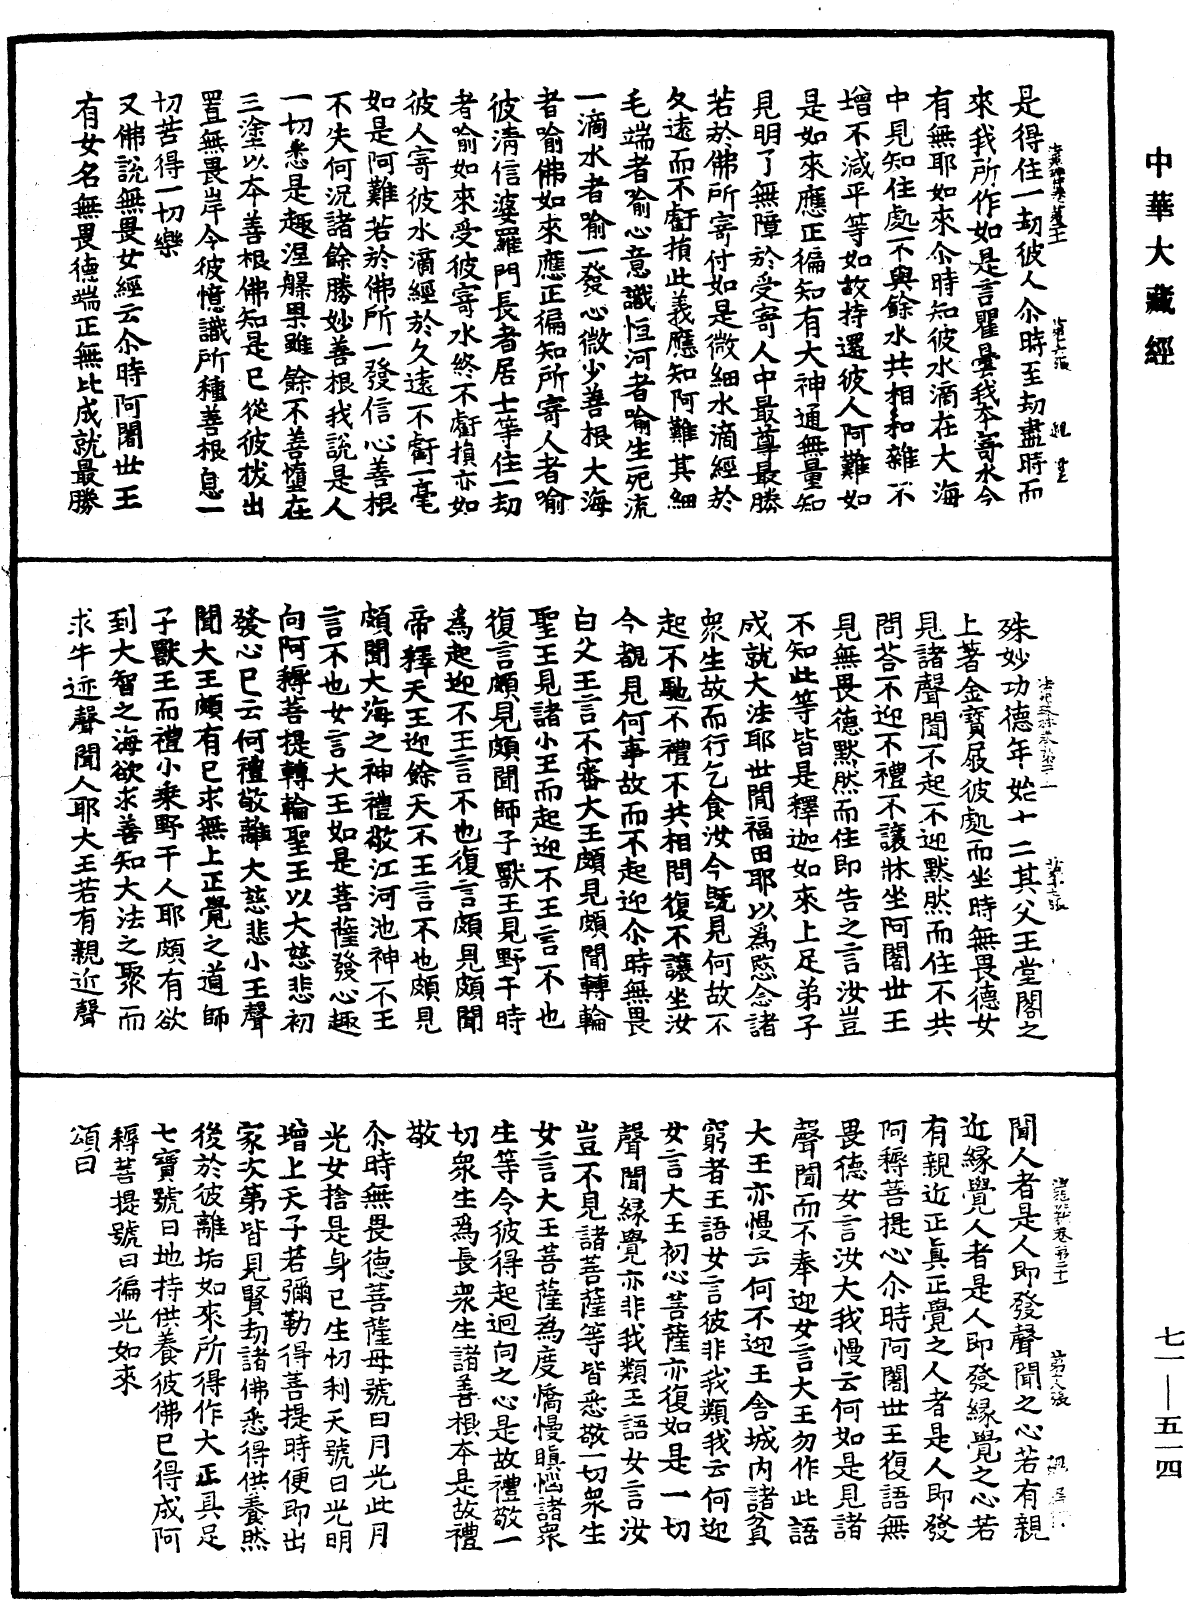 中華大藏經
是得住一劫彼人尒時至劫盡時而
來我所作如是言瞿曇我本寄水今
有無耶如來尒時知彼水滴在大海
中見知住處不與餘水共相和雜不
增不減平等如故持還彼人阿難如
是如來應正徧知有大神通無量知
見明了無障於受寄人中最尊最勝
若於佛所寄付如是微細水滴經於
久遠而不虧損此義應知阿難其細
毛端者喻心意識恒河者喻生死流
一滴水者喻一發心微少善根大海
者喻佛如來應正徧知所寄人者喻
彼清信婆羅門長者居士等住一劫
者喻如來受彼寄水終不虧損亦如
彼人寄彼水滴經於久遠不虧一毫
如是阿難若於佛所一發信心善根
不失何況諸餘勝妙善根我說是人
一切悉是趣涅槃果雖餘不善墮在
三塗以本善根佛知是已從彼拔出
置無畏岸令彼憶識所種善根息一
切苦得一切樂
又佛說無畏女經云尒時阿闍世王
有女名無畏德端正無比成就最勝
殊妙功德年始十二其父王堂閣之
上著金寶屐彼處而坐時無畏德女
見諸聲聞不起不迎默然而住不共
問荅不迎不禮不讓牀坐阿闍世王
見無畏德默然而住即告之言汝豈
不知此等皆是釋迦如來上足弟子
成就大法耶世間福田耶以為愍念諸
衆生故而行乞食汝今既見何故不
起不馳不禮不共相問復不讓坐汝
今覩見何事故而不起迎尒時無畏
白父王言不審大王頗見頗聞轉輪
聖王見諸小王而起迎不王言不也
復言頗見頗聞師子獸王見野干時
為起迎不王言不也復言頗見頗聞
帝釋天王迎餘天不王言不也頗見
頗聞大海之神禮敬江河池神不王
言不也女言大王如是菩薩發心趣
向阿耨菩提轉輪聖王以大慈悲初
發心已云何禮敬離大慈悲小王聲
聞大王頗有已求無上正覺之道師
子獸王而禮小乘野干人耶頗有欲
到大智之海欲求善知大法之聚而
求牛迹聲聞人耶大王若有親近聲
聞人者是人即發聲聞之心若有親
近緣覺人者是人即發緣覺之心若
有親近正真正覺之人者是人即發
阿耨菩提心尒時阿闍世王復語無
畏德女言汝大我慢云何如是見諸
聲聞而不奉迎女言大王勿作此語
大王亦慢云何不迎王舍城內諸貧
窮者王語女言彼非我類我云何迎
女言大王初心菩薩亦復如是一切
聲聞緣覺亦非我類王語女言汝
豈不見諸菩薩等皆悉敬一切衆生
女言大王菩薩為度憍慢瞋惱諸衆
生等令彼得起迴向之心是故禮敬一
切衆生為長衆生諸善根本是故禮
敬
尒時無畏德菩薩母號曰月光此月
光女捨是身已生忉利天號曰光明
增上天子若彌勒得菩提時便即出
家次第皆見賢劫諸佛悉得供養然
後於彼離垢如來所得作大正具足
七寶號曰地持供養彼佛已得成阿
耨菩提號曰徧光如來
頌曰
七一—五一四